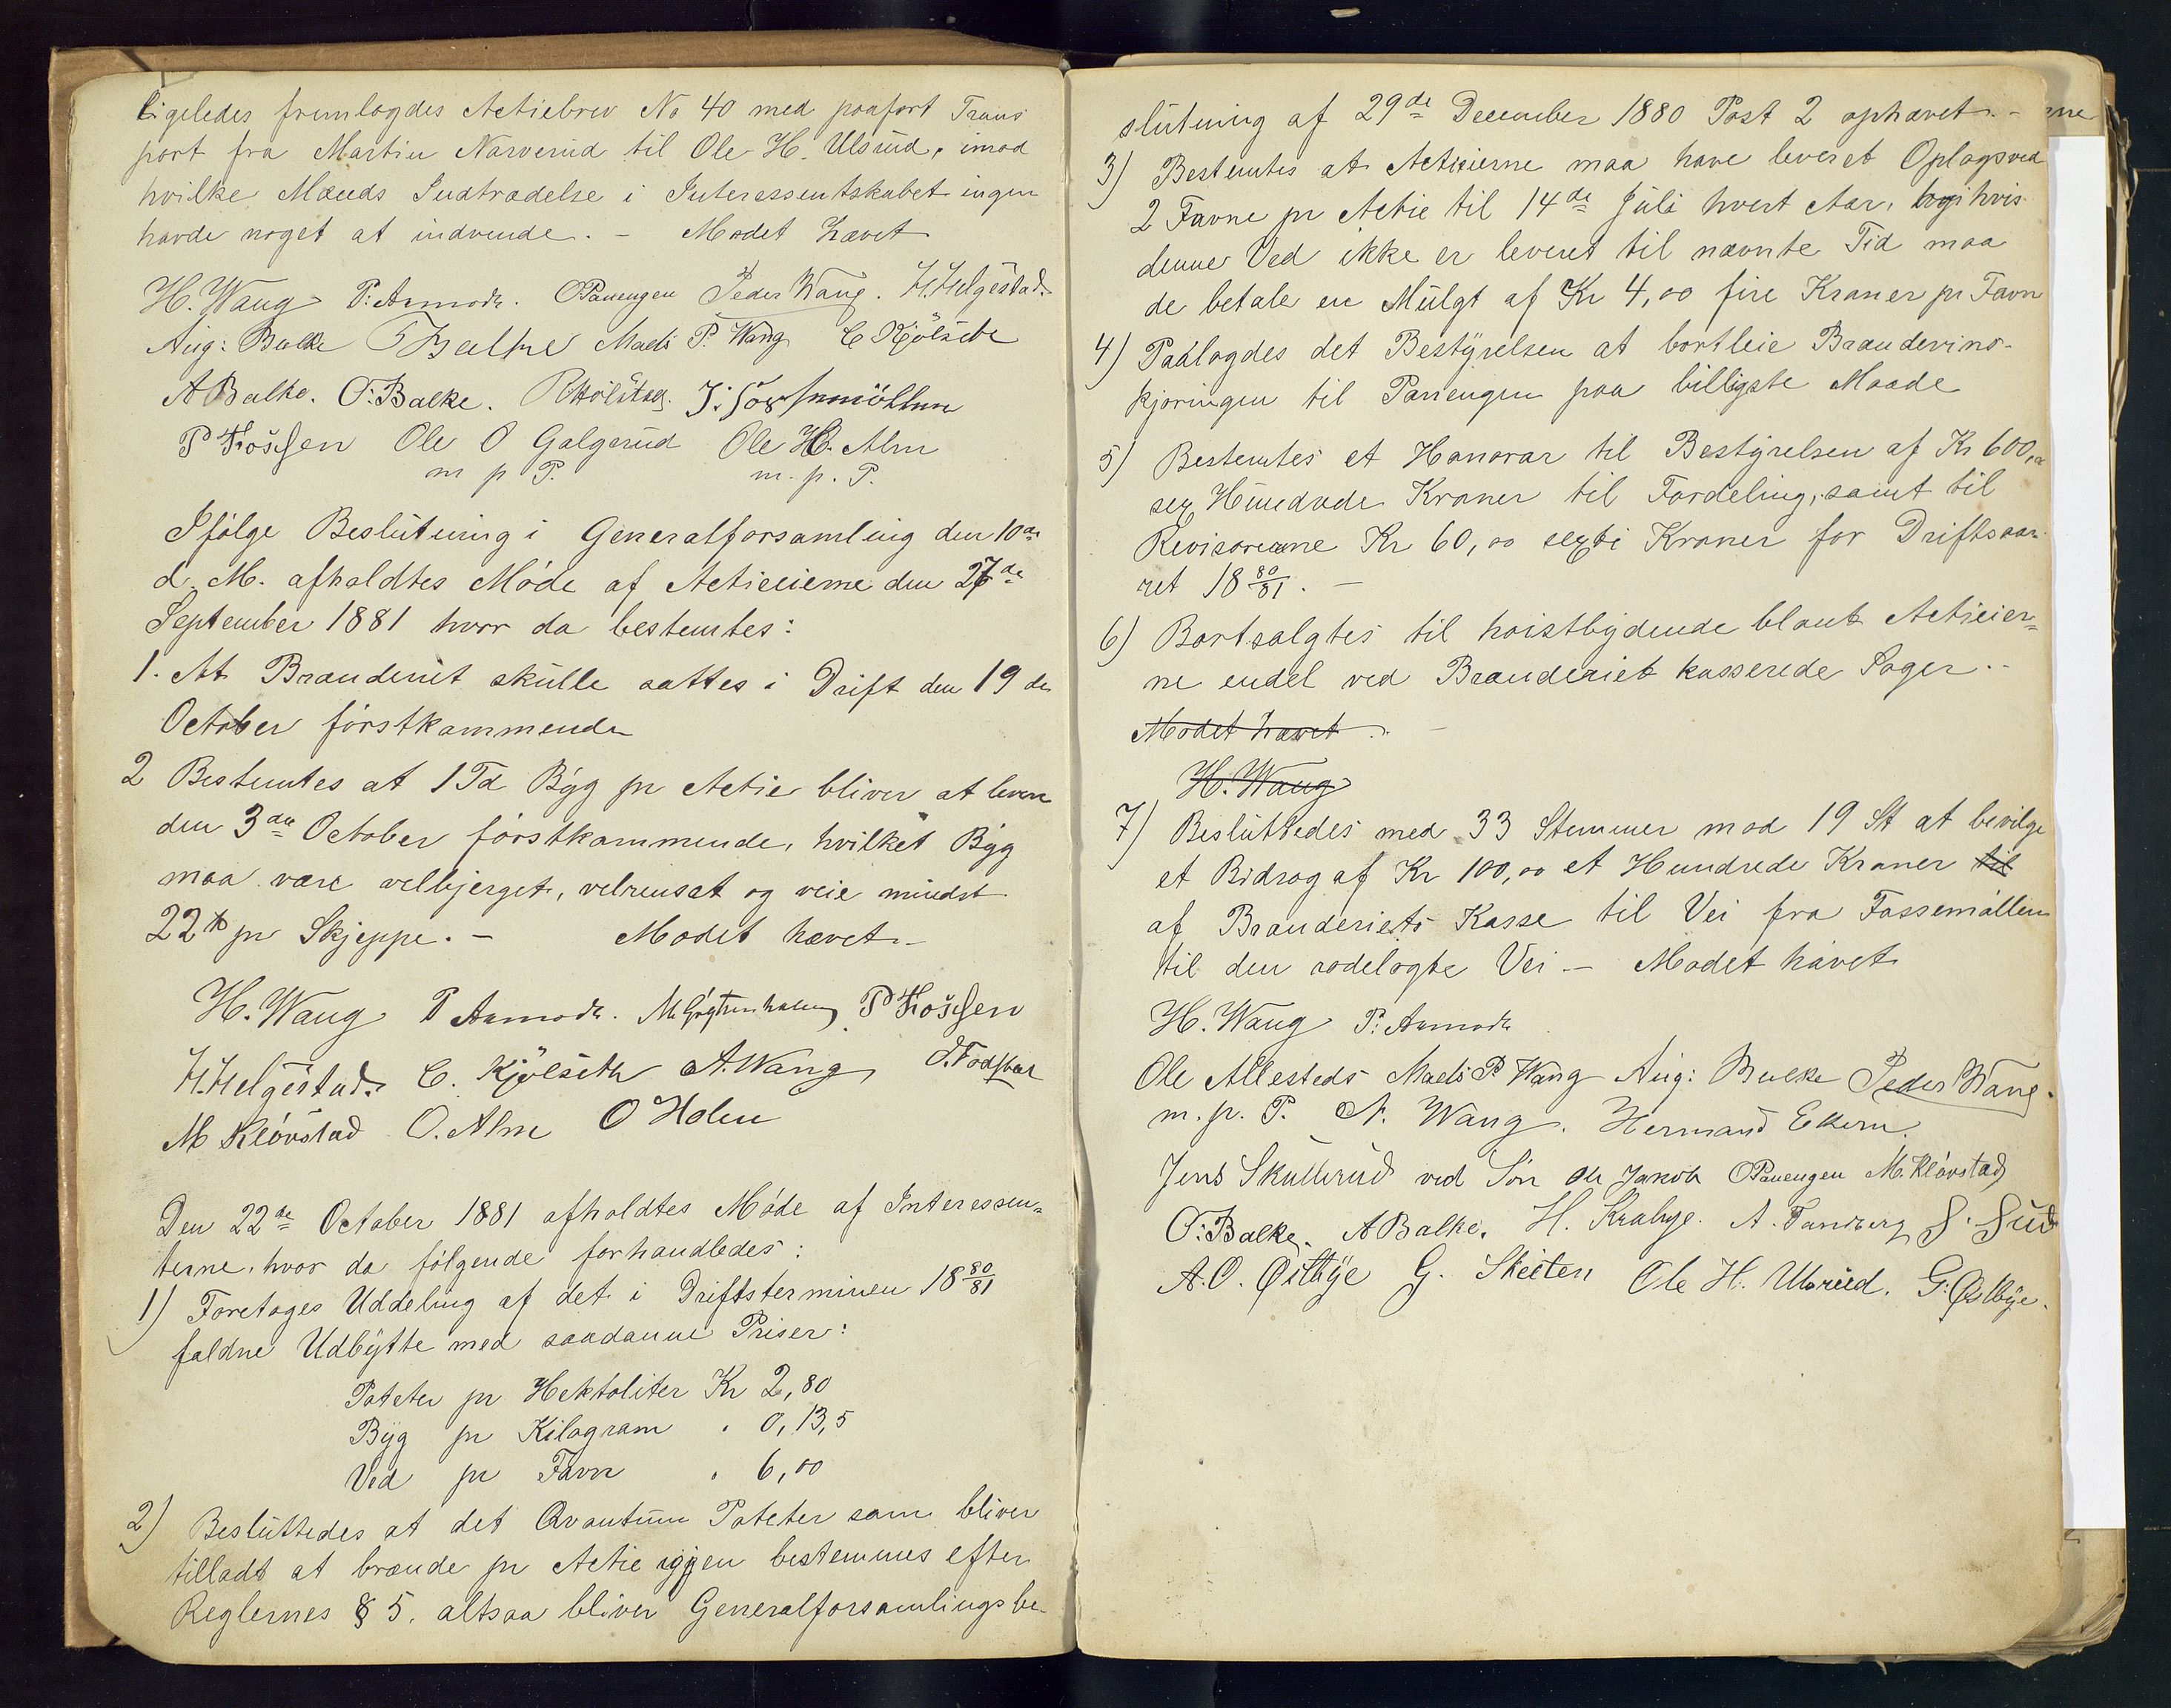 Ligeledes fremlagdes Actiebrev No 40 med paaført Trans
port fra Martin Narverud til Ole H. Ulsrud, imod
hvilke Mænds Indtrædelse i Interessentskabet ingen
havde noget at indvende. – Mødet hævet
H. Wang P. Aamodt. O Panengen Peder Wang. H. Helgestad.
Aug: Balke Balke Mads P. Wang C Kjölseth
A Balke. O. Balke.
Ole O Galgerud Ole H. Alm
m p P. m. p. P.
Ifølge Beslutning i Generalforsamling den 10de
d. M. afholdtes Møde af Actieeierne den 27de
September 1881 hvor da bestemtes:
1. At Brænderiet skulle sættes i Drift den 19 de
October førstkommende
2 Bestemtes at 1 Td Byg pr Actie bliver at levere
den 3die October førstkommende, hvilket Byg
maa være velbjerget, velrenset og veie mindst
22 ℔ pr Skjeppe. – Mødet hævet –
H. Wang P Aamodt.
H. Helgestad. C. Kjölseth A. Wang
M Kløvstad O. Alm O Holm
Den 22de October 1881 afholdtes Møde af Interessen-
terne, hvor da følgende forhandledes:
1) Foretages Uddeling af det i Driftsterminen 18 80/81
faldne Udbytte med saadanne Priser:
Poteter pr Hektoliter Kr 2,80
Byg pr Kilogram " 0,13,5
Ved pr Favn " 6,00
2) Besluttedes at det Qvantum Poteter som bliver
tilladt at brænde pr Actie igjen bestemmes efter
Reglernes § 5. altsaa bliver Generalforsamlingsbe-
slutning af 29de December 1880 Post 2 ophævet. –
3) Bestemtes at Actieeierne maa have leveret Oplagsved
2 Favne pr Actie til 14de Juli hvert Aar, hvis
denne Ved ikke er leveret til nævnte Tid maa
de betale en Mulgt af Kr 4,00 fire Kroner pr Favn
4) Paalagdes det Bestyrelsen at bortleie Brændevins-
kjøringen til Panengen paa billigste Maade
5) Bestemtes et Honorar til Bestyrelsen af Kr 600,00
sex Hundrede Kroner til Fordeling, samt til
Revisorerne Kr 60,00 sexti Kroner for Driftsaa-
ret 18 80/81. –
6) Bortsalgtes til høistbydende blant Actieeier-
ne endel ved Brænderiet kasserede Sager. –
Mødet hævet. –
H. Wang
7) Besluttedes med 33 Stemmer mod 19 St at bevilge
et Bidrag af Kr 100,00 et Hundrede Kroner til
af Brænderiets Kasse til Vei fra Fossemøllen
til den rodelagte Vei – Mødet hævet
H. Wang P. Aamodt
Ole Allestads Mads P. Wang Aug: Balke Peder Wang.
m. p. P. N. Wang. Hermand Ekern.
Jens Skullerud ved Søn Ole Jakob O Panengen M. Kløvstad
O. Balke. A Balke. H. Krabye. A. Tandberg
A. O. Østbye G. Skeiten Ole H. Ulsrud. G. Østbye.